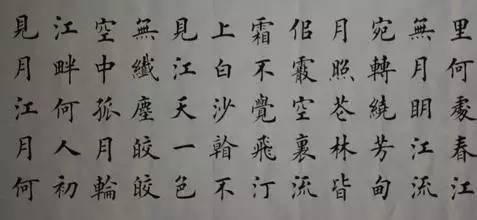 里何處春江
無月明江流
宛轉繞芳甸
月照芲林皆
佀霰空裏流
霜不覺飛汀
上白沙翰不
見江天一色
無纖塵皎皎
空中孤月輪
江畔何人初
見月江月何